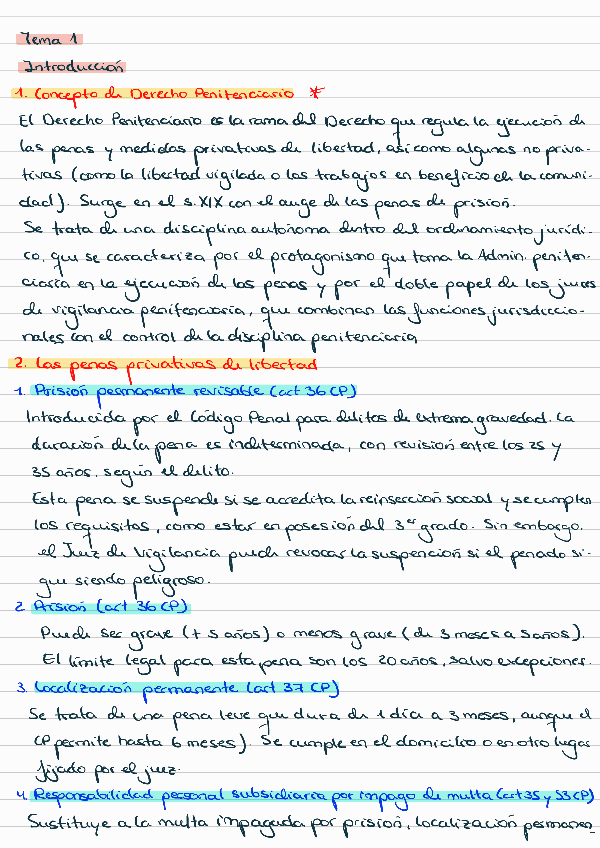 Tema 1
Introducción
1. Concepto de Derecho Penitenciario *
El Derecho Penitenciario es la rama del Derecho que regula la ejecución de
las penas y medidas privativas de libertad, así como algunas no priva-
tivas (como la libertad vigilada o los trabajos en beneficio de la comuni-
dad). Surge en el s.XIX con el auge de las penas de prisión.
Se trata de una disciplina autónoma dentro del ordenamiento jurídi-
co, que se caracteriza por el protagonismo que toma la Admin. peniten-
ciaria en la ejecución de las penas y por el doble papel de los jueces
de vigilancia penitenciaria, que combinan las funciones jurisdiccio-
nales con el control de la disciplina penitenciaria,
2. Las penas privativas de libertad
1. Prisión permanente revisable (art 36 CP)
Introducida por el Código Penal para delitos de extrema gravedad. La
duración de la pena es indeterminada, con revisión entre los 25 y
35 años, según el delito.
Esta pena se suspende si se acredita la reinserción social y se cumplen
los requisitos, como estar en posesión del 3er grado. Sin embargo,
el Juez de Vigilancia puede revocar la suspención si el penado si-
gue siendo peligroso.
2. Prisión (art 36 CP)
Puede ser grave (+ 5 años) o menos grave (de 3 meses a 5 años).
El límite legal para esta pena son los 20 años, salvo excepciones.
3. Localización permanente (art 37 CP)
Se trata de una pena leve que dura de 1 día a 3 meses, aunque el
CP permite hasta 6 meses). Se cumple en el domicilio o en otro lugar
fijado por el juez.
4. Responsabilidad personal subsidiaria por impago de multa (art 35 y 53 CP)
Sustituye a la multa impagada por prisión, localización permanen-